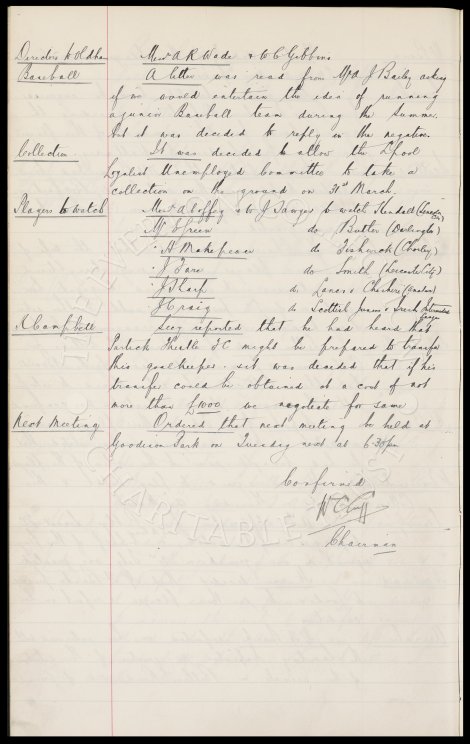 Directors to Oldham Messrs A R Wade & W C Gibbins
Baseball A letter was read from Mr A J Bailey asking
if we would entertain the idea of running
a junior Baseball team during the Summer
but it was decided to reply in the negative.
Collection It was decided to allow the L'pool
Loyalist Unemployed Committee to take a
collection on the ground on 31st March.
Players to watch Messrs A Coffey & W J Sawyer to watch Kendall
Mr E Green do Butler (Darlington)
" H Makepeace do Fishwick (Chorley)
" J Fare do Smith (Leicester City)
" J Sharp do Lancs v Cheshire (Amateur)
J Craig do Scottish Juniors v Irish
A Campbell Secy reported that he had heard that
Partick Thistle FC might be prepared to transfer
this goalkeeper. it was decided that if his
transfer could be obtained at a cost of not
more than £1000 we negotiate for same
Next Meeting Ordered that next meeting be held at
Goodison Park on Tuesday next at 6.30pm
Confirmed
W C Cuff
Chairman
CHARITABLE